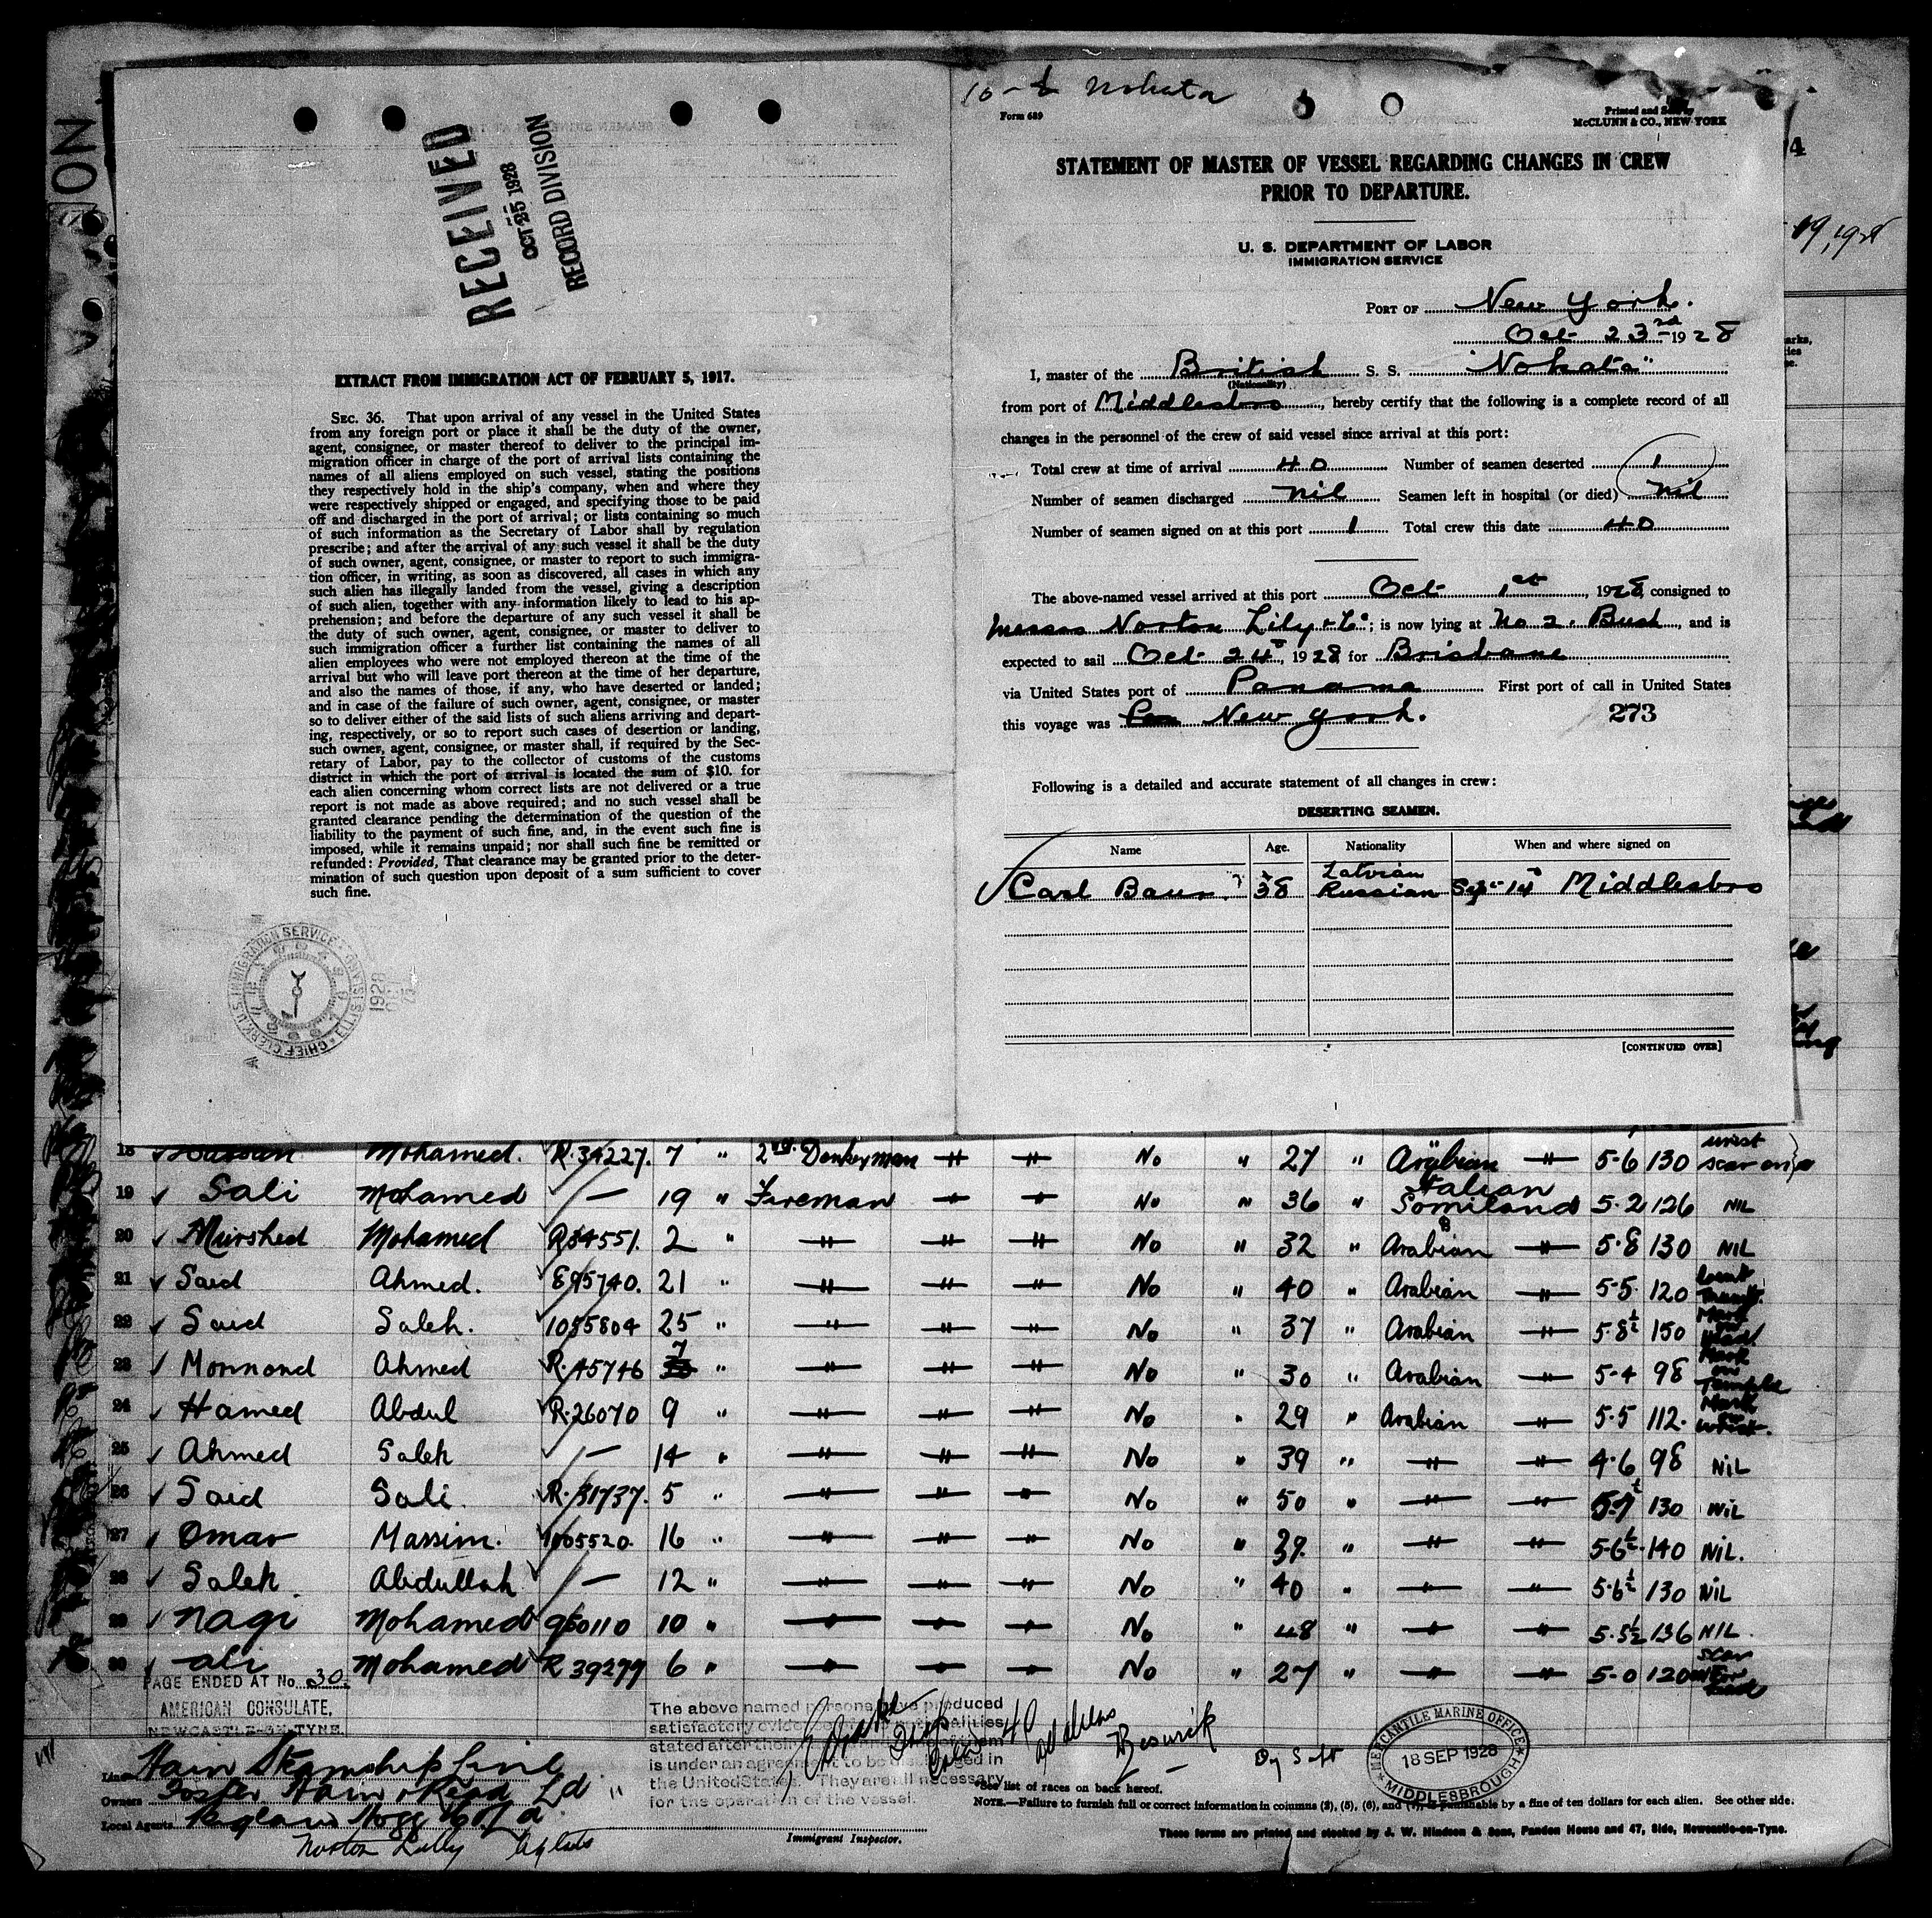 ION
RECEIVED
OCT 25 1928
RECORD DIVISION
EXTRACT FROM IMMIGRATION ACT OF FEBRUARY 5, 1917.
SEC. 36. That upon arrival of any vessel in the United States
from any foreign port or place it shall be the duty of the owner,
agent, consignee, or master thereof to deliver to the principal im-
migration officer in charge of the port of arrival lists containing the
names of all aliens employed on such vessel, stating the positions
they respectively hold in the ship's company, when and where they
were respectively shipped or engaged, and specifying those to be paid
off and discharged in the port of arrival; or lists containing so much
of such information as the Secretary of Labor shall by regulation
prescribe; and after the arrival of any such vessel it shall be the duty
of such owner, agent, consignee, or master to report to such immigra-
tion officer, in writing, as soon as discovered, all cases in which any
such alien has illegally landed from the vessel, giving a description
of such alien, together with any information likely to lead to his ap-
prehension; and before the departure of any such vessel it shall be
the duty of such owner, agent, consignee, or master to deliver to
such immigration officer a further list containing the names of all
alien employees who were not employed thereon at the time of the
arrival but who will leave port thereon at the time of her departure,
and also the names of those, if any, who have deserted or landed;
and in case of the failure of such owner, agent, consignee, or master
so to deliver either of the said lists of such aliens arriving and depart-
ing, respectively, or so to report such cases of desertion or landing,
such owner, agent, consignee, or master shall, if required by the Sec-
retary of Labor, pay to the collector of customs of the customs
district in which the port of arrival is located the sum of $10. for
each alien concerning whom correct lists are not delivered or a true
report is not made as above required; and no such vessel shall be
granted clearance pending the determination of the question of the
liability to the payment of such fine, and, in the event such fine is
imposed, while it remains unpaid; nor shall such fine be remitted or
refunded: Provided, That clearance may be granted prior to the deter-
mination of such question upon deposit of a sum sufficient to cover
such fine.
CHIEF CLERK U.S. IMMIGRATION SERVICE
1928
Nohata
Form 689
Printed and Sold by
McCLUNN & CO., NEW YORK
STATEMENT OF MASTER OF VESSEL REGARDING CHANGES IN CREW
PRIOR TO DEPARTURE.
U. S. DEPARTMENT OF LABOR
IMMIGRATION SERVICE
PORT OF New York.
Oct 23rd 1928
I, master of the British S. S. "Nohata"
(Nationality)
from port of Middlesbro, hereby certify that the following is a complete record of all
changes in the personnel of the crew of said vessel since arrival at this port:
Total crew at time of arrival 40 Number of seamen deserted 1
Number of seamen discharged nil Seamen left in hospital (or died) nil
Number of seamen signed on at this port 1 Total crew this date 40
The above-named vessel arrived at this port Oct 1st, 1928, consigned to
Messrs Norton Lily & Co; is now lying at No 2. Bush, and is
expected to sail Oct 24th, 1928 for Brisbane
via United States port of Panama First port of call in United States
this voyage was New York. 273
Following is a detailed and accurate statement of all changes in crew:
DESERTING SEAMEN.
Name Age. Nationality When and where signed on
Carl Baur 38 Latvian Russian Sep 14 Middlesbro
[CONTINUED OVER]
18 Hassan Mohamed. R.34227. 7 " 2nd Donkeyman No " 27 " Arabian 5-6 130 wrist scar on
19 Sali Mohamed — 19 " Fireman No " 36 " Italian Somiland 5.2 126 NIL
20 Murshed Mohamed R34551. 2 " No " 32 " Arabian 5.8 130 NIL
21 Said Ahmed. E95740. 21 " No " 40 " Arabian 5-5 120
22 Said Saleh. 1055804 25 " No " 37 " Arabian 5.8½ 150
23 Monnond Ahmed R.45746 7 " No " 30 " Arabian 5-4 98 Mark on Temple
24 Hamed Abdul R.26070 9 " No " 29 " Arabian 5.5 112. Mark on wrist.
25 Ahmed Saleh — 14 " No " 39 " 4.6 98 NIL
26 Said Sali. R.31737. 5 " No " 50 " 5.7½ 130 NIL
27 Omar Massim. 1005520. 16 " No " 39. " 5-6½ 140 NIL.
28 Saleh Abdullah — 12 " No " 40 " 5.6½ 130 NIL
29 Nagi Mohamed 960110 10 " No " 48 " 5.5½ 136 NIL.
30 Ali Mohamed R 39279 6 " No " 27 " 5-0 120 scar
PAGE ENDED AT No. 30.
AMERICAN CONSULATE,
NEWCASTLE-ON-TYNE.
The above named persons have produced
satisfactory evidence nationalities
stated after their
is under an agreement to be in
the United States. They are all necessary
for the operation of the vessel.
MERCANTILE MARINE OFFICE
18 SEP 1928
MIDDLESBROUGH
Line Hain Steamship Line
Owners Foster Hain & Read Ld
Local Agents
Norton Lilly
Immigrant Inspector.
*See list of races on back hereof.
NOTE.—Failure to furnish full or correct information in columns (2), (5), (6), and (7), is punishable by a fine of ten dollars for each alien. See other side.
These forms are printed and stocked by J. W. Hindson & Sons, Pandon House and 47, Side, Newcastle-on-Tyne.